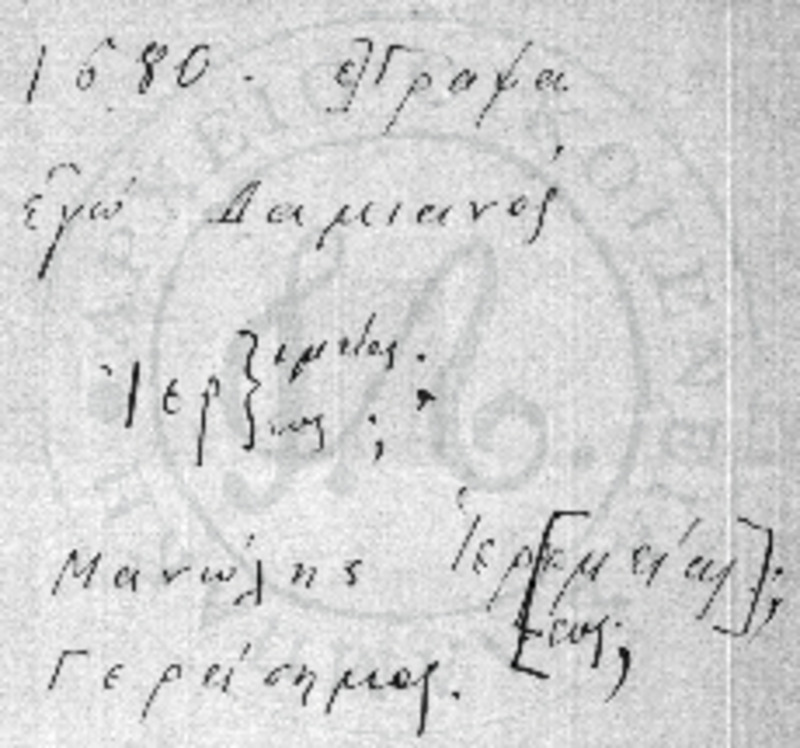 1680. ἔγραψα
ἐγὼ Δαμιανός
Ἱερ}εμείας.
εύς ; ;
Μανώλης Ἱερ[εμείας];
[εύς;
Γεράσημος.